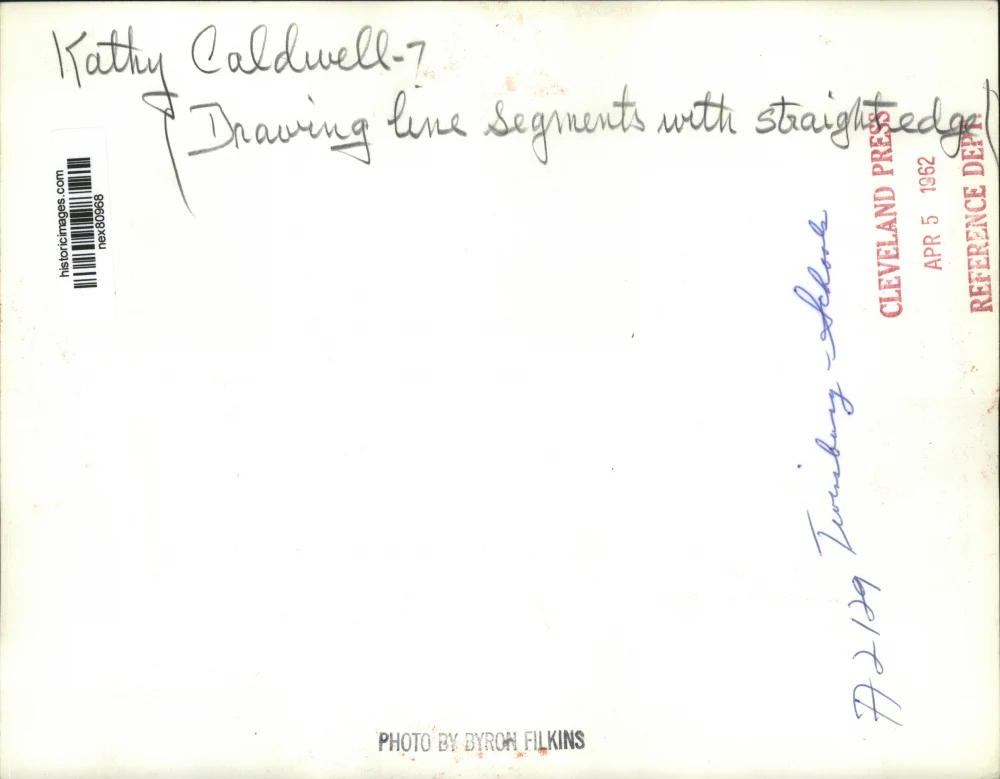 Kathy Caldwell-7
(Drawing line segments with straight edge)
historicimages.com
nex80968
CLEVELAND PRESS
APR 5 1962
REFERENCE DEPT
Twinsburg - Schools
PHOTO BY BYRON FILKINS